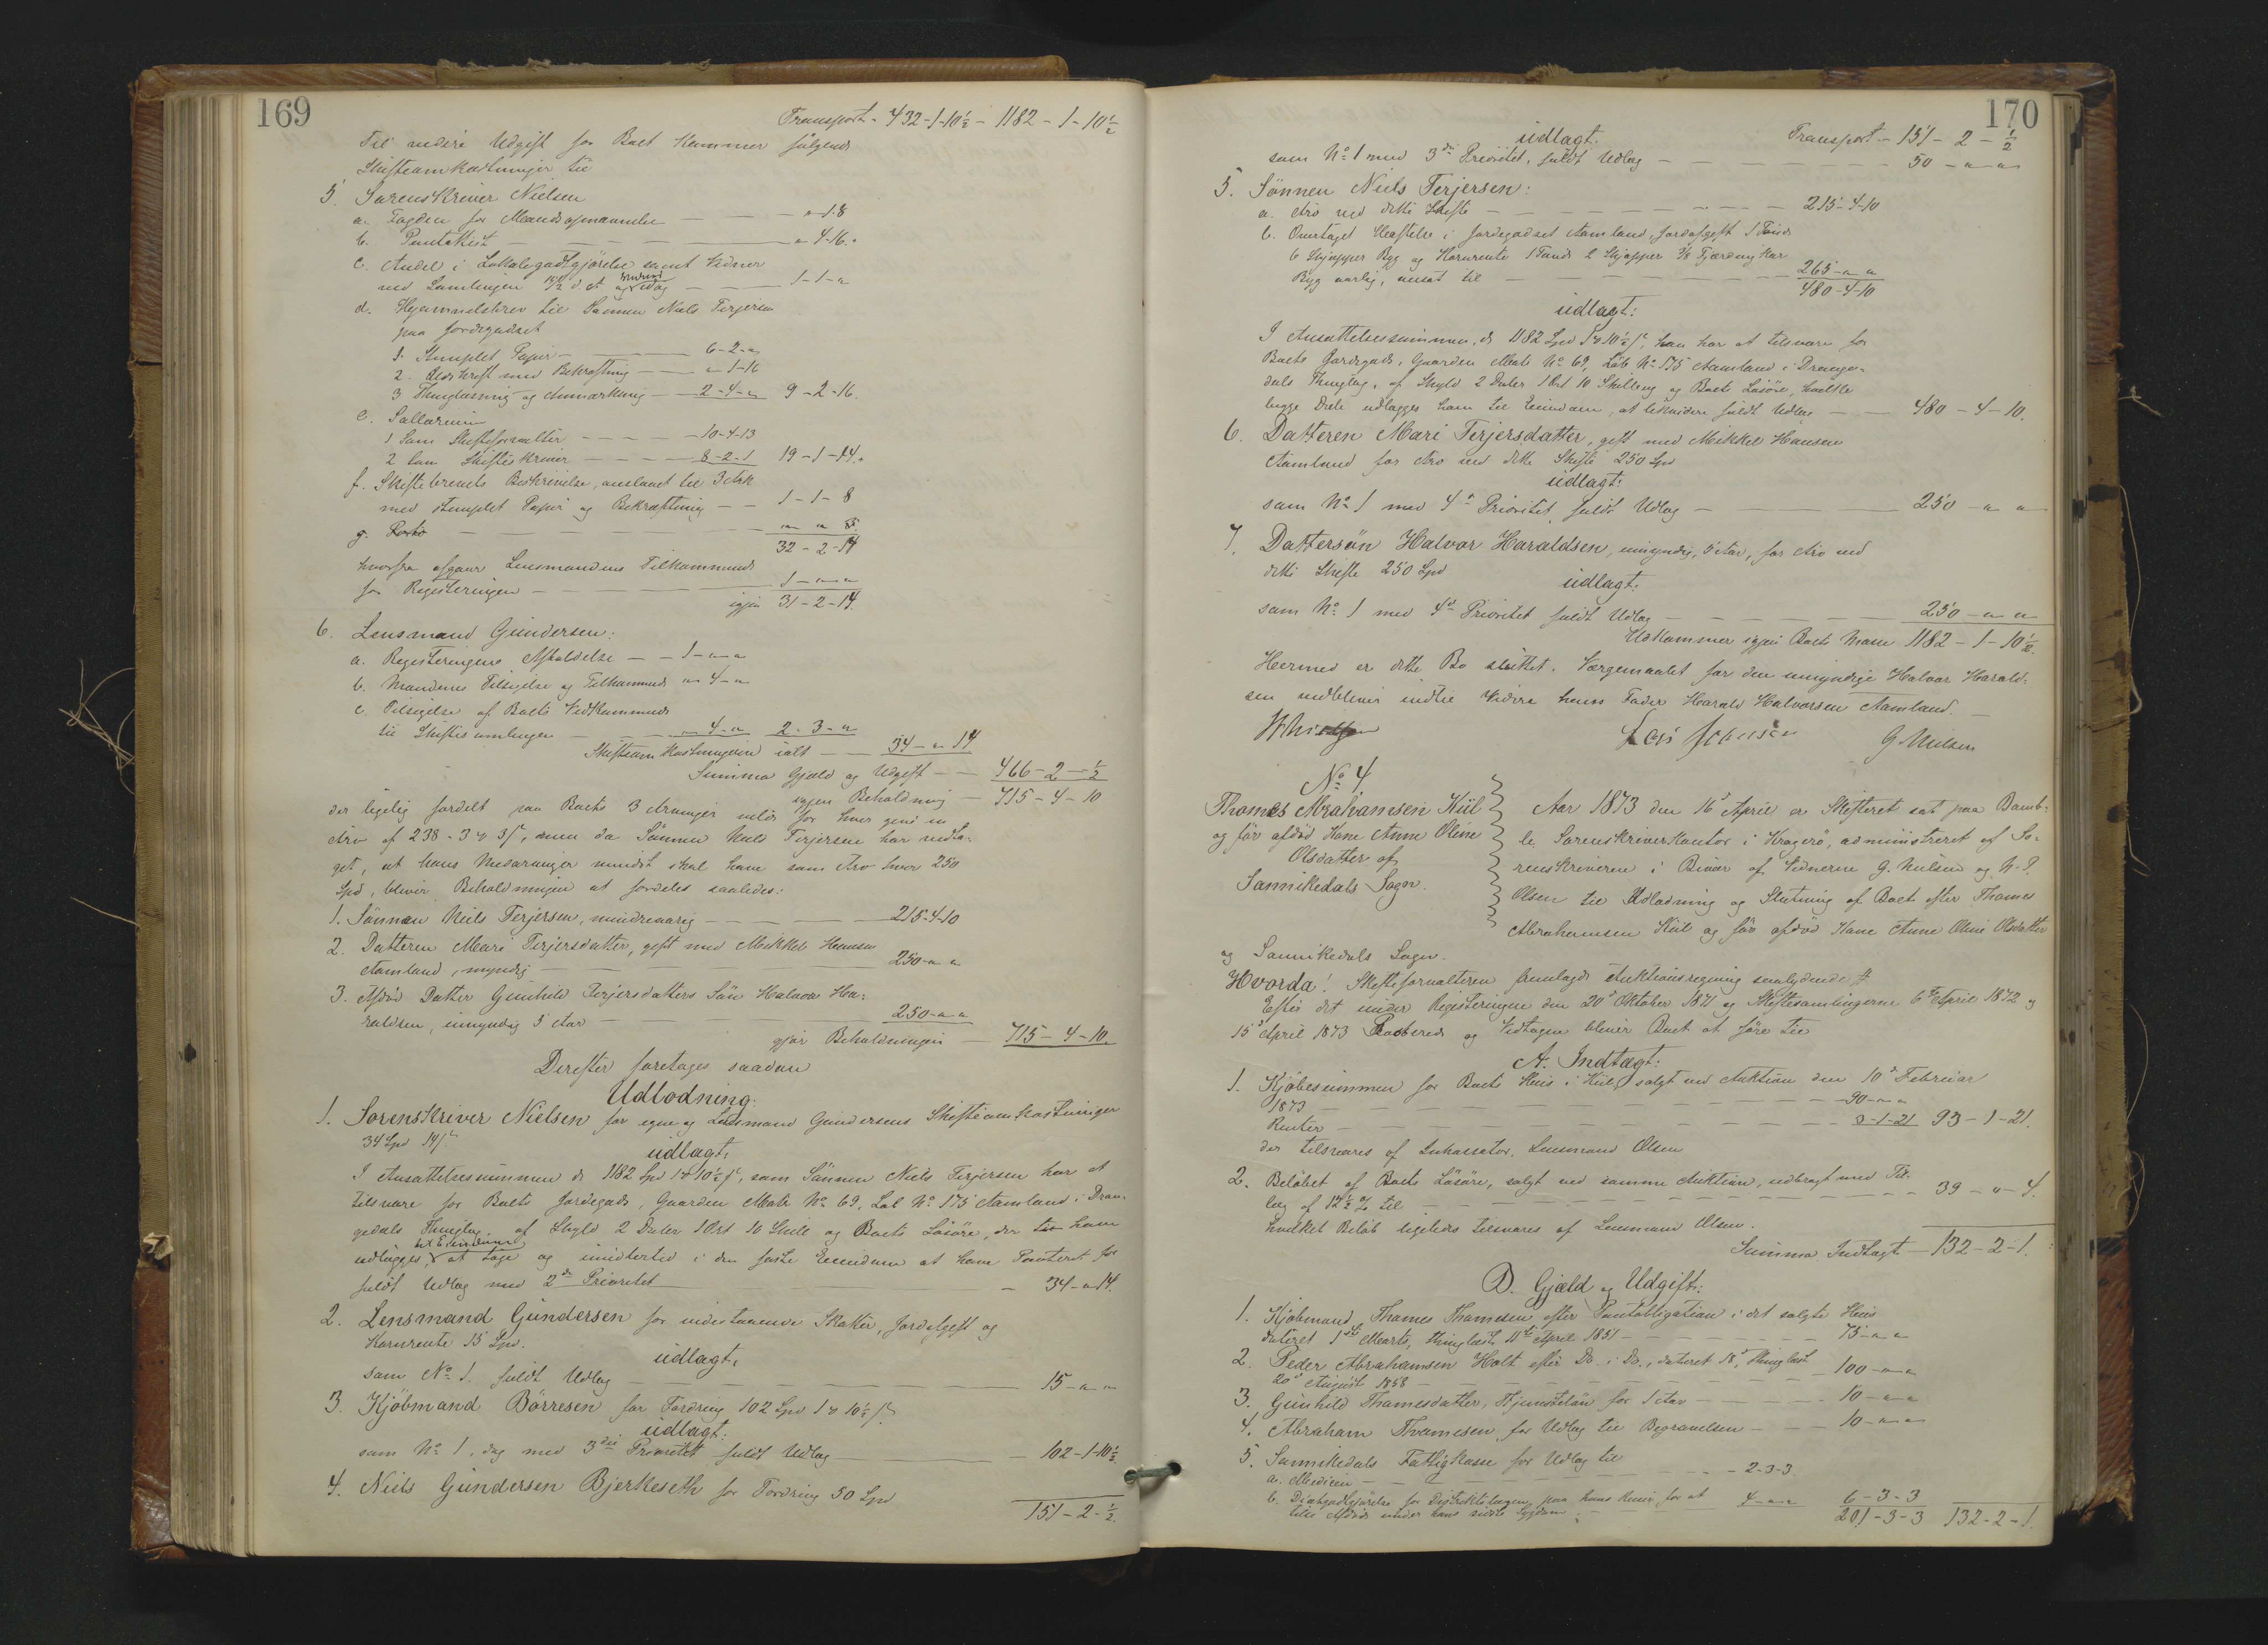 169
Transport - 432-1-10½ - 1182-1-10½
Til videre Udgift for Boet kommer følgende
Skifteomkostninger til
5. Sorenskriver Nielsen
a. Fogden for Mændsopnævnelse — — — " 1-8
b. — — — " 4-16.
c. Andel i Lokalegodtgjørelse samt Vidner
ved Samlingen og idag — — 1-1-"
d. Hjemmelsbrev til Sønnen Niels Terjersen
paa Jordegodset
1. Stemplet Papir — — 6-2-"
2. med Bekræftning — — " 1-16
3 Thinglæsning og Anmærkning — 2-4-" 9-2-16.
e. Sallarium
1 som Skifteforvalter — — — 10-4-13
2 som Skifteskriver — — — 8-2-1 19-1-14.
f. Skiftebrevets Beskrivelse, anslaaet til 3 Ark
med stemplet Papir og Bekræftning — — 1-1-8
g. Porto — — — " "
32-2-14
hvorfra afgaar Lensmandens Tilkommende
for Registeringen — — — 1-"-"
igjen 31-2-14.
6. Lensmand Gundersen:
a. Registeringens Afholdelse — — 1-"-"
b. Mændenes Tilsigelse og Tilkommende " 4-"
c. Tilsigelse af Boets Vedkommende
til Skiftesamlingen — — — " 4-" 2-3-"
Skifteomkostningerne ialt — — 34-"-14
Summa Gjæld og Udgift — — 466-2-½
igjen Beholdning — 715-4-10
der ligelig fordelt paa Boets 3 Arvinger vilde for hver give en
Arv af 238-3 ₰ 3 ß, men da Sønnen Niels Terjersen har vedta-
get, at hans Medarvinger mindst skal have som Arv hver 250
Spd, bliver Beholdningen at fordeles saaledes:
1. Sønnen Niels Terjersen, mindreaarig — — — — 215-4-10
2. Datteren Mari Terjersdatter, gift med Mikkel Hansen
Aamland, myndig — — — — — 250-"-"
3. Afdød Datter Gunhild Terjersdatters Søn Halvor Ha-
raldsen, umyndig 5 Aar — — — — 250-"-"
gjør Beholdningen — 715-4-10.
Derefter foretages saadan
Udlodning.
1. Sorenskriver Nielsen for egne og Lensmand Gundersens Skifteomkostninger
34 Spd 14 ß.
udlagt:
I Ansættelsessummen de 1182 Spd 1 ₰ 10½ ß, som Sønnen Niels Terjersen har at
tilsvare for Boets Jordegods, Gaarden Matr No 69, Løb No 175 Aamland i Dran-
gedals Thinglag af Skyld 2 Daler 1 Ort 10 Skill og Boets Løsøre, der ham
til Eiendom
udlægges, at tage og imidlertid i den faste Eiendom at have Panteret for
fuldt Udlæg med 2den Prioritet — — 34-"-14.
2. Lensmand Gundersen for indestaaende Skatter, Jordafgift og
Kornrente 15 Spd.
udlagt,
som No 1. fuldt Udlæg — — — 15-"-"
3. Kjøbmand Börresen for Fordring 102 Spd 1 ₰ 10½ ß
udlagt:
som No 1, dog med 3die Prioritet fuldt Udlæg — — 102-1-10½
4. Niels Gundersen Bjerkeseth for Fordring 50 Spd
151-2-½
170
Transport - 151-2-½
udlagt:
som No 1 med 3die Prioritet, fuldt Udlæg — — — 50-"-"
5. Sönnen Niels Terjersen:
a. Arv ved dette Skifte — — — — — 215-4-10
b. Overtaget Hæftelse i Jordegodset Aamland, Jordafgift 1 Tønde
6 Skjæpper Byg og Kornrente 1 Tønde 2 Skjæpper Fjærdingkar
Byg aarlig, ansat til — — — 265-"-"
480-4-10
udlagt:
I Ansættelsessummen, de 1182 Spd 1 ₰ 10½ ß, han har at tilsvare for
Boets Jordegods, Gaarden Matr No 69, Løb No 175 Aamland i Drange-
dals Thinglag, af Skyld 2 Daler 1 Ort 10 Skilling og Boets Løsøre, hvilke
begge Dele udlægges ham til Eiendom, at likvidere fuldt Udlæg — — 480-4-10.
6. Datteren Mari Terjersdatter, gift med Mikkel Hansen
Aamland for Arv ved dette Skifte 250 Spd
udlagt:
som No 1 med 4de Prioritet fuldt Udlæg — — — 250-"-"
7. Dattersön Halvor Haraldsen, umyndig, 5 Aar, for Arv ved
dette Skifte 250 Spd
udlagt:
som No 1 med 4de Prioritet fuldt Udlæg — — — 250-"-"
Udkommer igjen Boets Masse 1182-1-10½.
Hermed er dette Bo sluttet. Værgemaalet for den umyndige Halvor Harald-
sen vedbliver indtil Videre hans Fader Harald Halvorsen Aamland. —
G. Nielsen
No 4
Thomas Abrahamsen Kiil
og før afdød Kone Anne Oline
Olsdatter af
Sannikedals Sogn.
Aar 1873 den 16de April er Skifteret sat paa Bamb-
le Sorenskriverkontor i Kragerø, administreret af So-
renskriveren i Bivær af Vidnerne G. Nielsen og N. P.
Olsen til Udlodning og Slutning af Boet efter Thomas
Abrahamsen Kiil og før afdød Kone Anne Oline Olsdatter
og Sannikedals Sogn.
Hvorda! Skifteforvalteren fremlagde Auktionsregning saalydende #
Efter det under Registeringen den 20de Oktober 1871 og Skiftesamlingerne 6te April 1872 og
15de April 1873 Passerede og Vedtagne bliver Boet at føre til
A. Indtægt:
1. Kjøbesummen for Boets Huus i Kiil, solgt ved Auktion den 10de Februar
1873 — — — — — 90-"-"
Renter — — — — — 3-1-21 93-1-21.
der tilsvares af Inkassator, Lensmand Olsen
2. Beløbet af Boets Løsøre, solgt ved samme Auktion, udbragt med Til-
læg af 12½ % til — — — — 39-"-4.
hvilket Beløb ligeledes tilsvares af Lensmand Olsen.
Summa Indtægt — 132-2-1.
B. Gjæld og Udgift:
1. Kjøbmand Thomas Thomesen efter Pantobligation i det solgte Huus
dateret 1ste Marts, thinglæst 11te April 1851 — — — 75-"-"
2. Peder Abrahamsen Holt efter Do. i Do., dateret 18de, thinglæst
20de August 1858 — — — — 100-"-"
3. Gunhild Thomesdatter, Tjenesteløn for 1 Aar — — — 10-"-"
4. Abraham Thomesen for Udlæg til Begravelsen — — — 10-"-"
5. Sannikedals Fattigkasse for Udlæg til
a. Medicin — — — 2-3-3
b. Diætgodtgjørelse for Distriktslægen paa hans Reise for at 4-"-" 6-3-3
tilse Afdøde under hans sidste Sygdom. — 201-3-3 132-2-1.